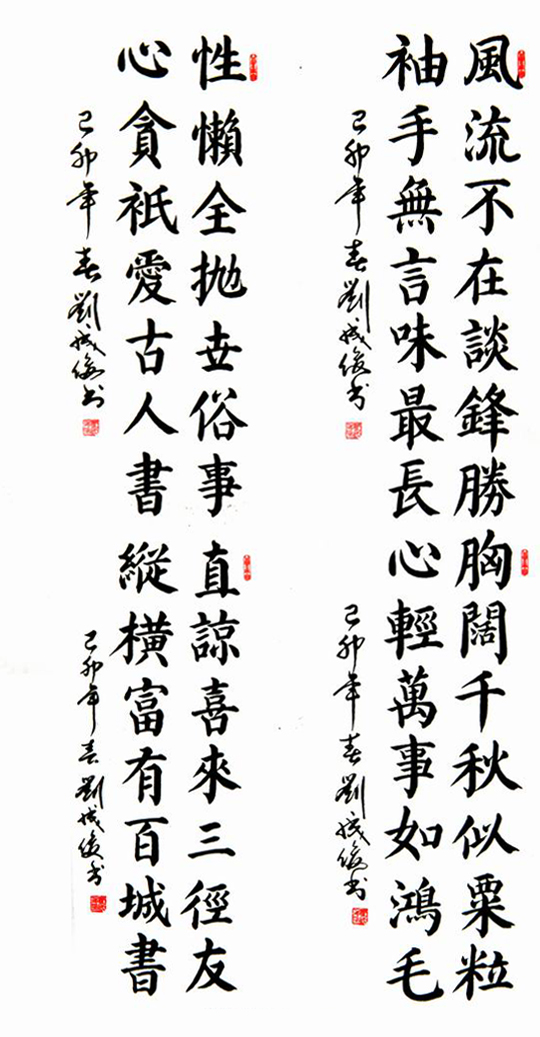 風流不在談鋒勝
袖手無言味最長
己卯年春劉成俊书
胸闊千秋似粟粒
心輕萬事如鴻毛
己卯年春劉成俊书
性懶全抛世俗事
心貪祇愛古人書
己卯年春劉成俊书
直諒喜來三徑友
縱橫富有百城書
己卯年春劉成俊书